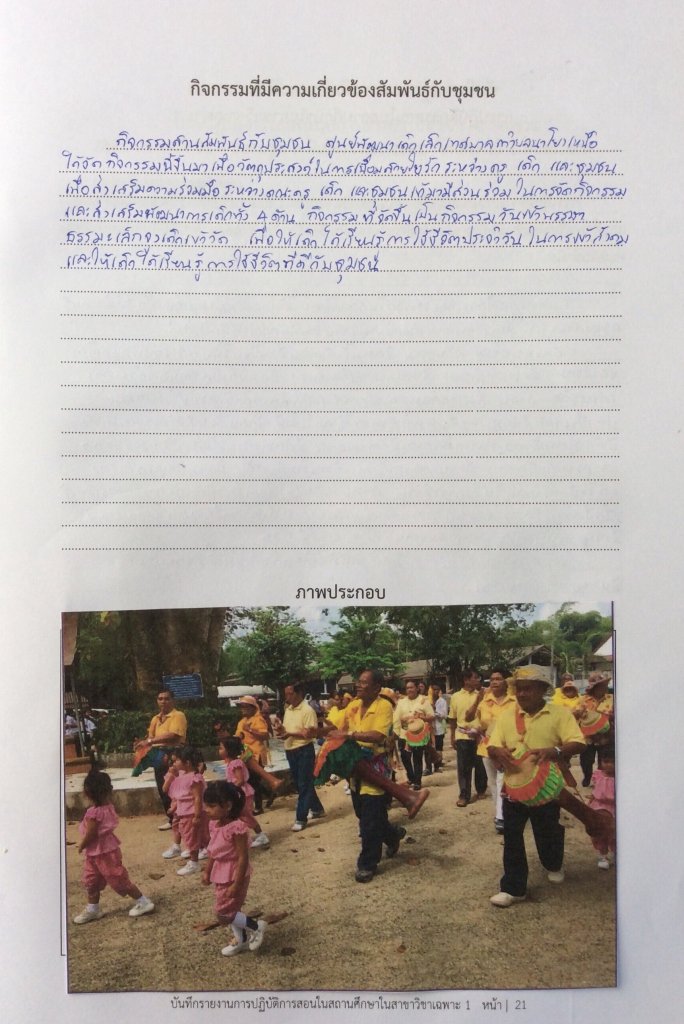 กิจกรรมที่มีความเกี่ยวข้องสัมพันธ์กับชุมชน
กิจกรรมสานสัมพันธ์กับชุมชน ศูนย์พัฒนาเด็กเล็กเทศบาลตำบลนาโยงเหนือ
ได้จัดกิจกรรมนี้ขึ้นมาเพื่อวัตถุประสงค์ในการเชื่อมสายใยรัก ระหว่างครู เด็ก และชุมชน
เพื่อส่งเสริมความร่วมมือระหว่างคณะครู เด็ก และชุมชนเข้ามามีส่วนร่วม ในการจัดกิจกรรม
และส่งเสริมพัฒนาการเด็กทั้ง 4 ด้าน กิจกรรมที่จัดขึ้นเป็นกิจกรรมวันเข้าพรรษา
ธรรมะเล็กจูงเด็กเข้าวัด เพื่อให้เด็กได้เรียนรู้การใช้ชีวิตประจำวัน ในการเข้าสังคม
และให้เด็กได้เรียนรู้การใช้ชีวิตที่ดีกับชุมชน
ภาพประกอบ
บันทึกรายงานการปฏิบัติการสอนในสถานศึกษาในสาขาวิชาเฉพาะ 1 หน้า | 21